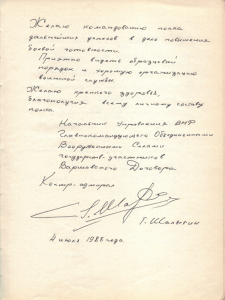 Желаю командованию полка
дальнейших успехов в деле повышения
боевой готовности.
Приятно видеть образцовый
порядок и хорошую организацию
воинской службы.
Желаю крепкого здоровья,
благополучия всему личному составу
полка.
Начальник Управления ВМФ
Главнокомандующего Объединенными
Вооруженными Силами
государств-участников
Варшавского Договора
Контр-адмирал
Г. Шалыгин
4 июля 1986 года